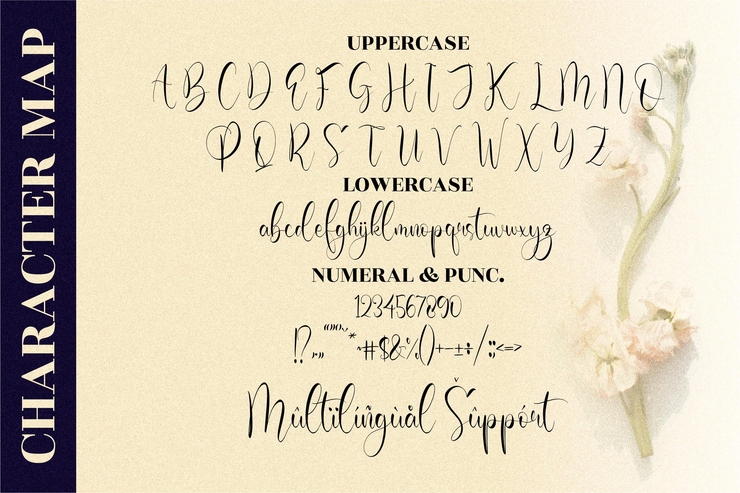 CHARACTER MAP
UPPERCASE
A B C D E F G H I J K L M N O
P Q R S T U V W X Y Z
LOWERCASE
abcdefghijklmnopqrstuvwxyz
NUMERAL & PUNC.
1234567890
!?.,„“”‘’*~#$&%()+-±÷/:;<=>
Mûltïlíñgùål Šûppórt